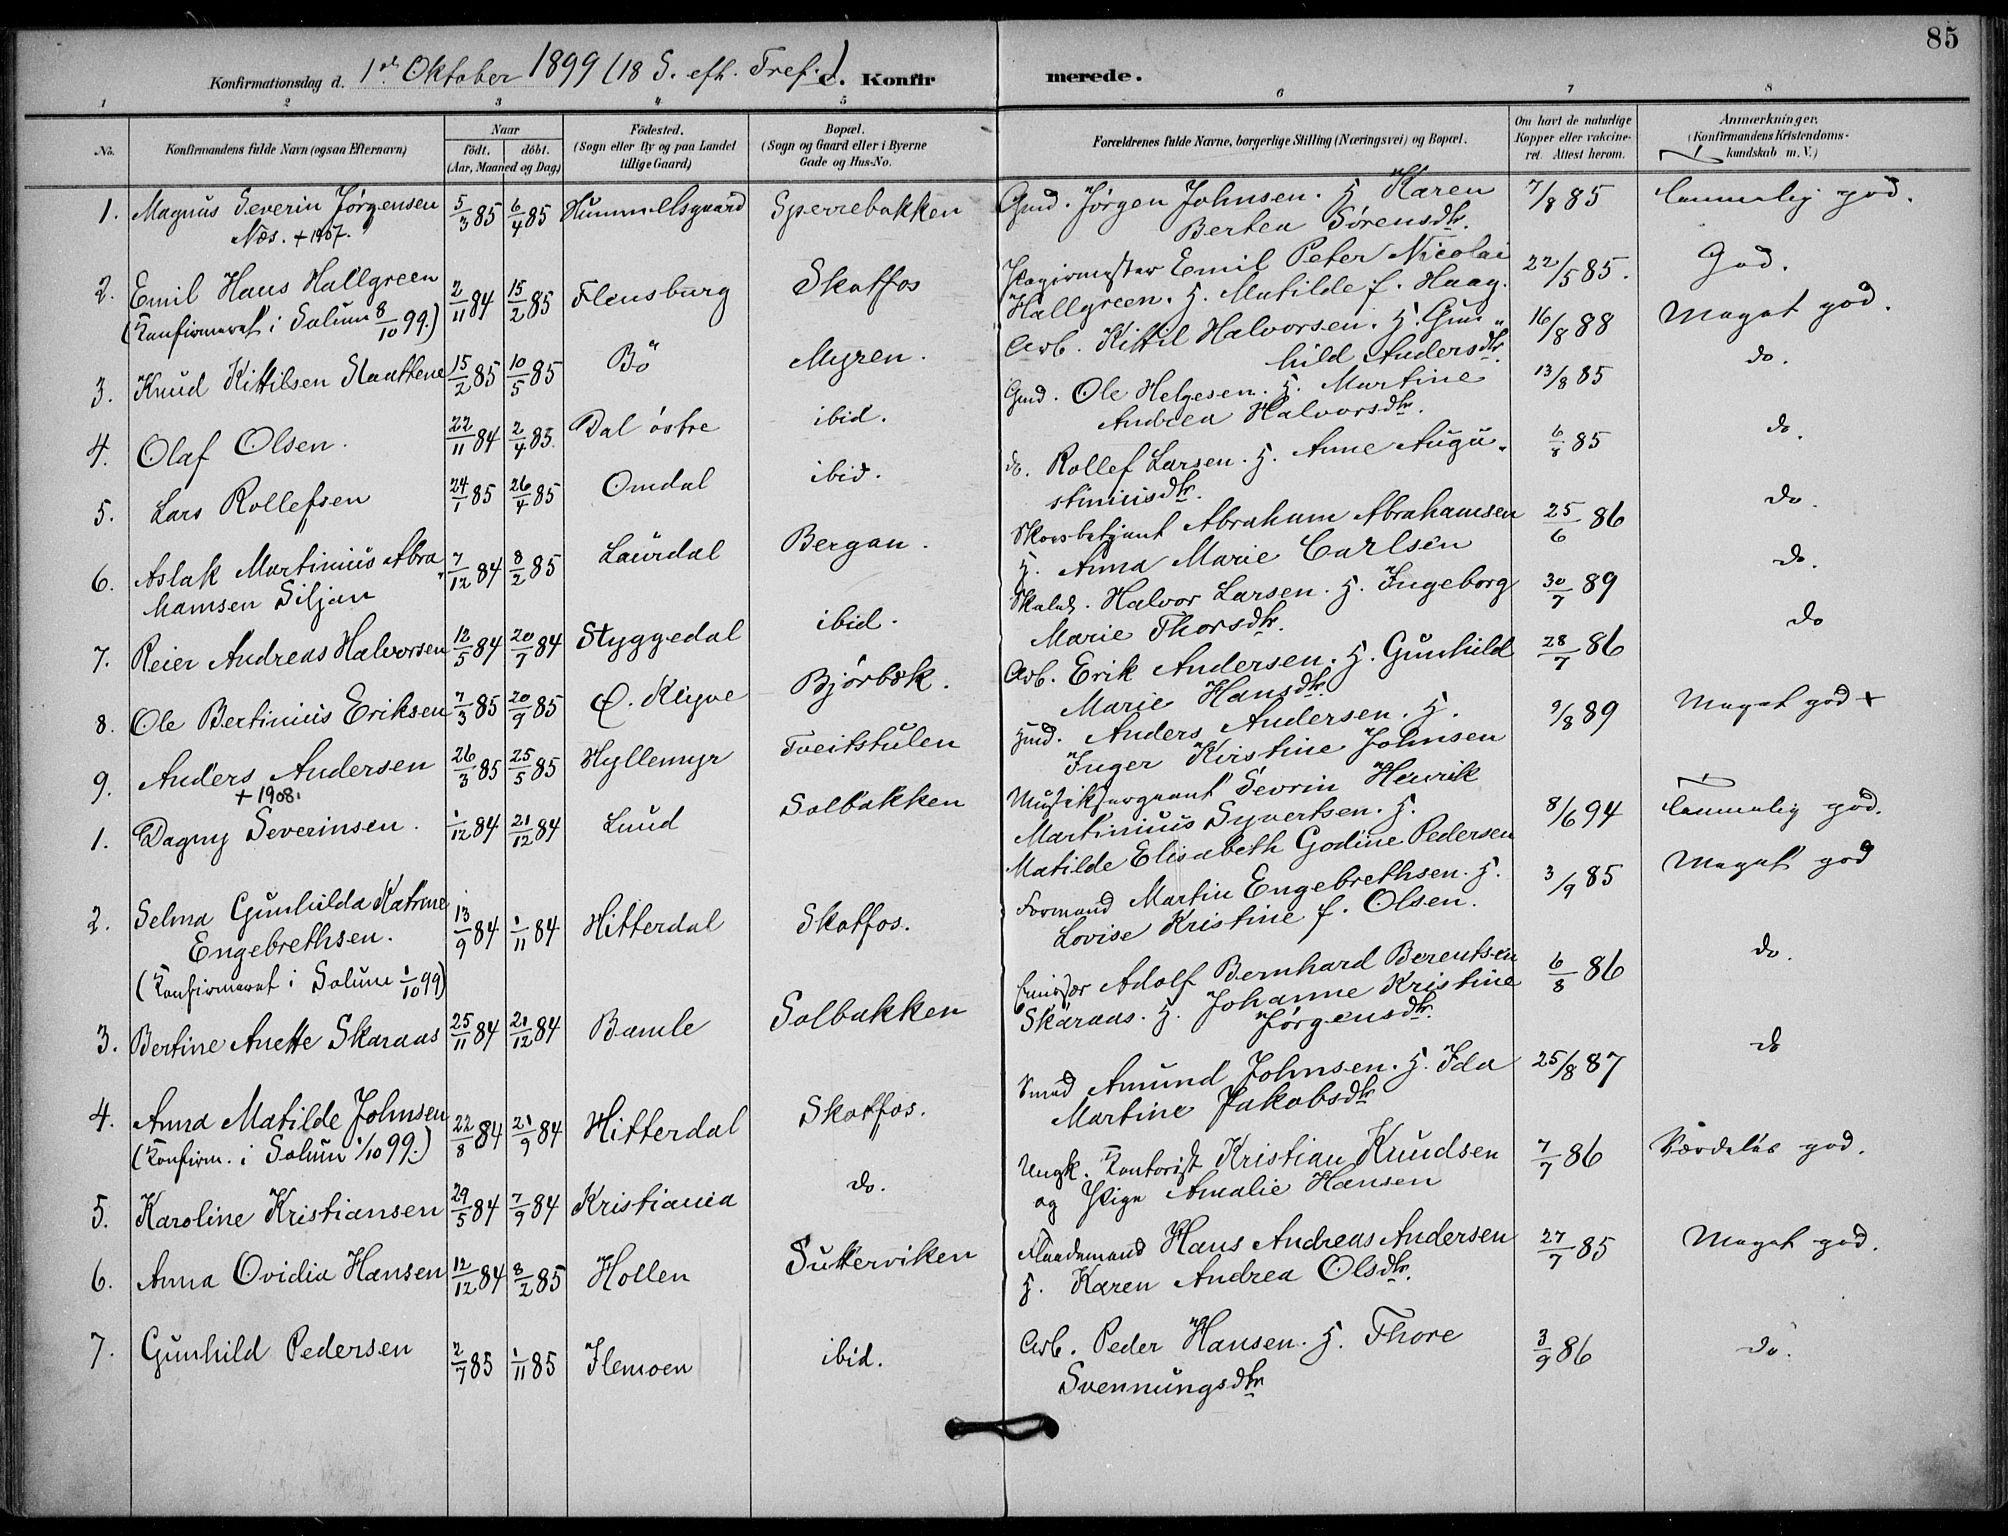 85
Konfirmationsdag d. 1ste Oktober 1899 (18 S. eft. Tref.) C. Konfirmerede.
1 2 3 4 5 6 7 8
No. Konfirmandens fulde Navn (ogsaa Efternavn) Naar födt. döbt. (Aar, Maaned og Dag) Födested. (Sogn eller By og paa Landet tillige Gaard) Bopæl. (Sogn og Gaard eller i Byerne Gade og Hus-No. Forældrenes fulde Navne, borgerlige Stilling (Næringsvei) og Bopæl. Om havt de naturlige Kopper eller vakcineret. Attest herom. Anmærkninger. (Konfirmandens Kristendomskundskab m. V.)
1. Magnus Severin Jørgensen 5/3 85 6/4 85 Hummelsgaard Sperrebakken Gmd. Jørgen Johnsen. H. Karen 7/8 85 Temmelig god.
Næs. + 1907. Berthea Sörensdtr.
2. Emil Hans Hallgreen 2/11 84 15/2 85 Flensburg Skotfos Papirmester Emil Peter Nicolai 22/5 85. God.
(Konfirmeret i Solum 8/10 99.) Hallgreen. H. Matilde f. Haag.
3. Knud Kittilsen Slaattene 15/2 85 10/5 85 Bö Myren. Arb. Kittil Halvorsen. H. Gun 16/8 88 Meget god.
hild Andersdtr.
4. Olaf Olsen. 22/11 84 2/4 85. Dal östre ibid. Gmd. Ole Helgesen. H. Martine 13/8 85 do.
Andrea Halvorsdtr.
5. Lars Rollefsen 24/1 85 26/4 85 Omdal ibid. do. Rollef Larsen. H. Anne Augu 6/8 85 do.
stiniusdtr.
6. Aslak Martinius Abra 7/12 84 8/2 85 Laurdal Bergan. Skovbetjent Abraham Abrahamsen 25/6 86 do.
hamsen Siljan H. Anna Marie Carlsen
7. Reier Andreas Halvorsen 12/5 84 20/7 84 Styggedal ibid. Halvor Larsen. H. Ingeborg 30/7 89 do.
Marie Thorsdtr.
8. Ole Bertinius Eriksen 7/3 85 20/9 85 Ø. Klyve Björbæk. Arb. Erik Andersen. H. Gunhild 28/7 86 do
Marie Hansdtr.
9. Anders Andersen 26/3 85 25/5 85 Hyllemyr Tveitstulen Gmd. Anders Andersen. H. 9/8 89 Meget god +
+ 1908. Inger Kristine Johnsen
1. Dagny Severinsen. 1/12 84 21/12 84 Lund Solbakken Musiksergeant Sevrin Henrik 8/6 94 Temmelig god.
Martinius Syvertsen. H.
Matilde Elisabeth Godine Pedersen
2. Selma Gunhilda Katrine 13/9 84 1/11 84 Hitterdal Skotfos. Formand Martin Engebrethsen. H. 3/9 85 Meget god
Engebrethsen. Lovise Kristine f. Olsen.
(Konfirmeret i Solum 1/10 99)
3. Bertine Anette Skaraas 25/11 84 21/12 84 Bamle Solbakken Emissær Adolf Bernhard Berentsen 6/8 86 do.
Skaraas. H. Johanne Kristine
Jørgensdtr.
4. Anna Matilde Johnsen 22/8 84 21/9 84 Hitterdal Skotfos. Smed Amund Johnsen. H. Ida 25/8 87 do
(Konfirm. i Solum 1/10 99.) Martine Jakobsdtr
5. Karoline Kristiansen 29/5 84 7/9 84 Kristiania do. Ungk. Kontorist Kristian Knudsen 7/7 86 Særdeles god.
og Pige Amalie Hansen
6. Anna Ovidia Hansen 12/12 84 8/2 85 Hollen Sukterviken Flaademand Hans Andreas Andersen 27/7 85 Meget god.
H. Karen Andrea Olsdtr.
7. Gunhild Pedersen 2/7 85 1/11 85 Flemoen ibid. Arb. Peder Hansen. H. Thore 3/9 86 do.
Svennungsdtr